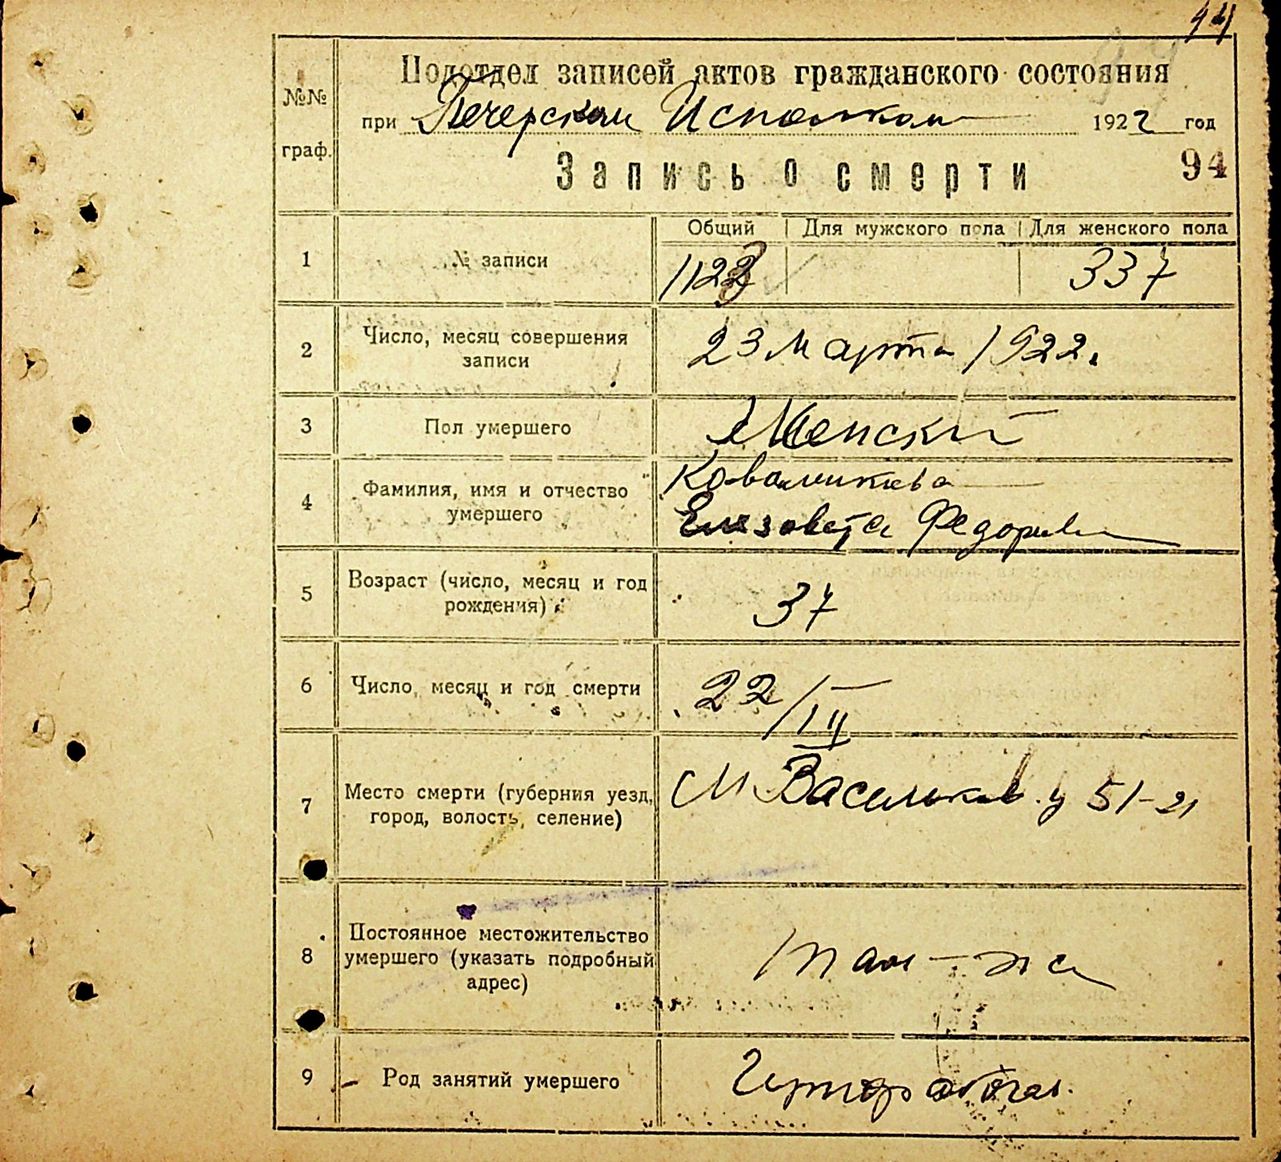 44
Подотдел записей актов гражданского состояния
при Печерском Исполкоме 1922 год
Запись о смерти 94
№№ граф.
Общий Для мужского пола Для женского пола
1 № записи 1123 337
2 Число, месяц совершения записи 23 марта 1922.
3 Пол умершего Женский
4 Фамилия, имя и отчество умершего
Елизавета Федоровна
5 Возраст (число, месяц и год рождения) 37
6 Число, месяц и год смерти 22/III
7 Место смерти (губерния уезд, город, волость, селение) М Васильков. у 51-21
8 Постоянное местожительство умершего (указать подробный адрес) там-же
9 Род занятий умершего